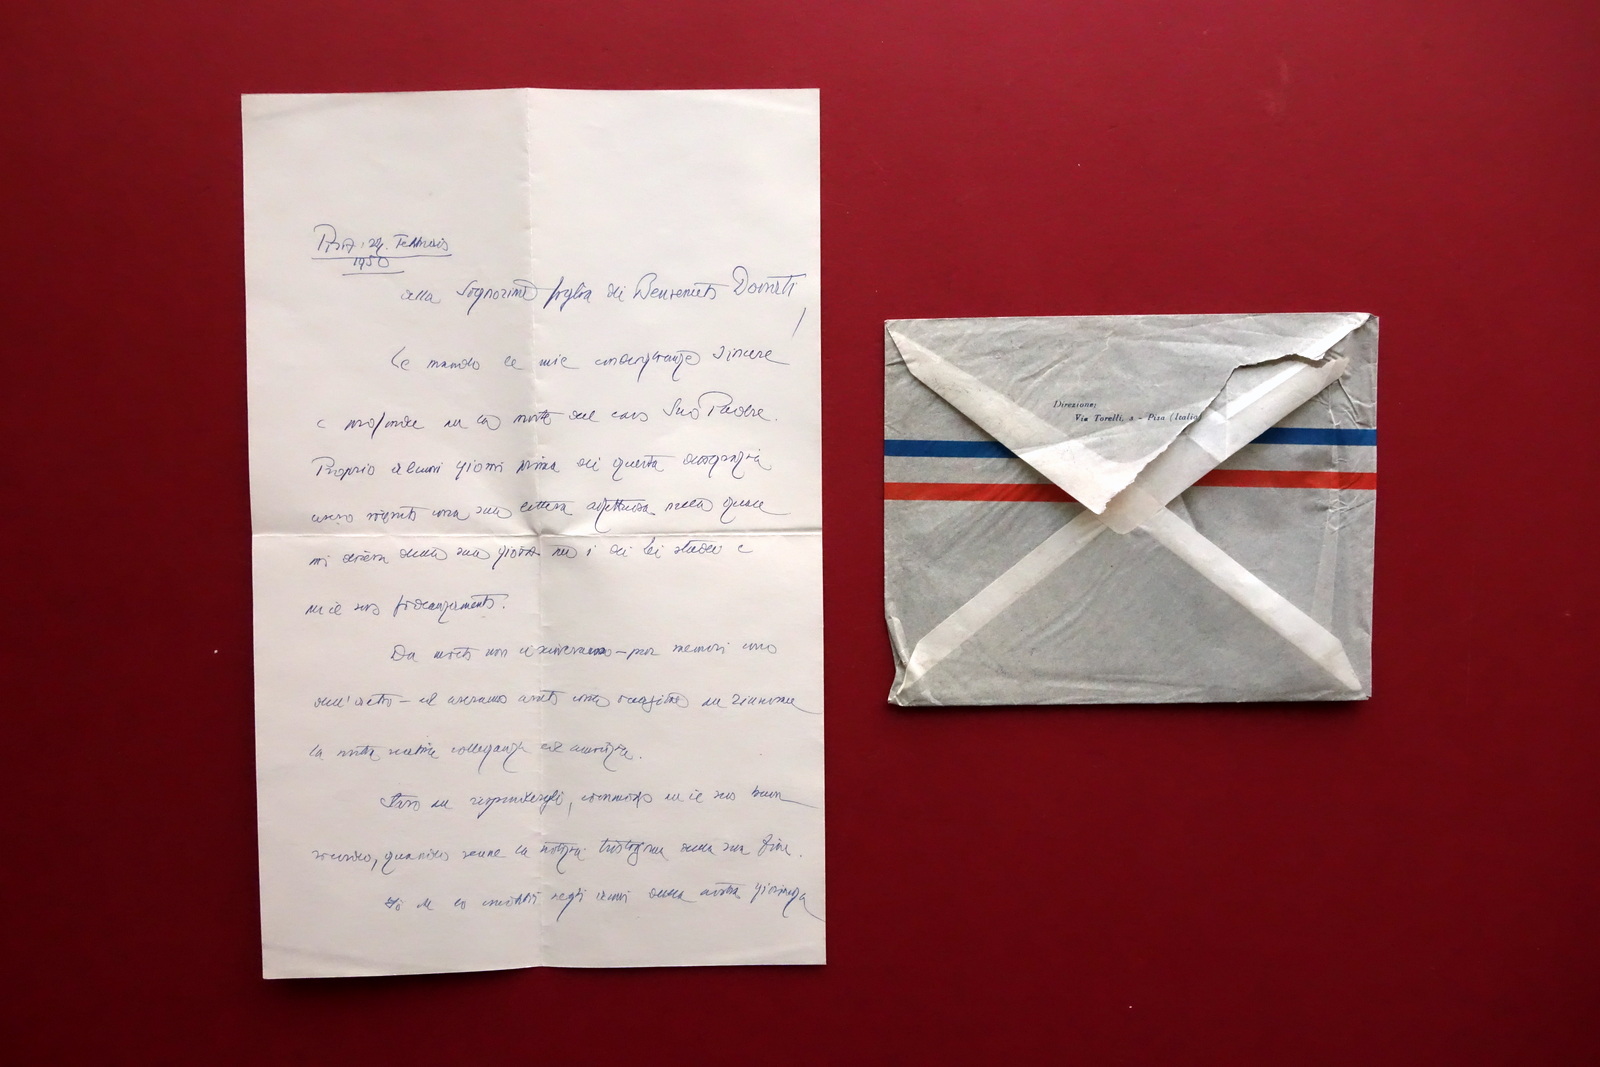 Pisa, 24. Febbraio
1950
alla Signorina figlia di Benvenuto Donati
Le mando le mie condoglianze sincere
e profonde per la morte del caro Suo Padre.
Proprio alcuni giorni prima di questa disgrazia
avevo ricevuto una sua lettera affettuosa nella quale
mi diceva della sua gioia per i di lei studi e
per il suo fidanzamento.
Da molto non ci scrivevamo – pur memori uno
dell'altro – ed avevamo avuto una occasione per rinnovare
la nostra antica colleganza ed amicizia.
Stavo per rispondergli, commosso per il suo buon
ricordo, quando venne la notizia della sua fine.
Io lo conobbi negli anni della nostra giovinezza
Direzione:
Via Torelli, - Pisa (Italia)